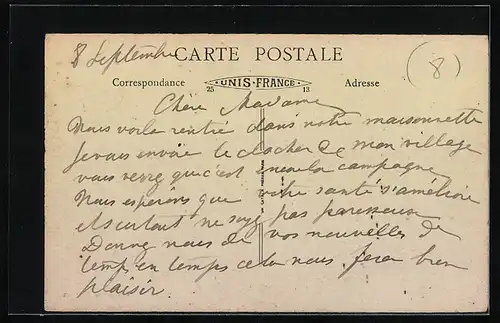 8 Septembre CARTE POSTALE (8)
Correspondance UNIS-FRANCE Adresse
25 13
Chère Madame
Nous voila rentré dans notre maisonnette
Je vous envoie le clocher de mon village
vous verez que c'est la campagne
Nous espérons que votre santé s'améliore
et surtout ne soyez pas paresseuse
Donnez nous de vos nouvelles de
temp en temps cela nous fera bien
plaisir